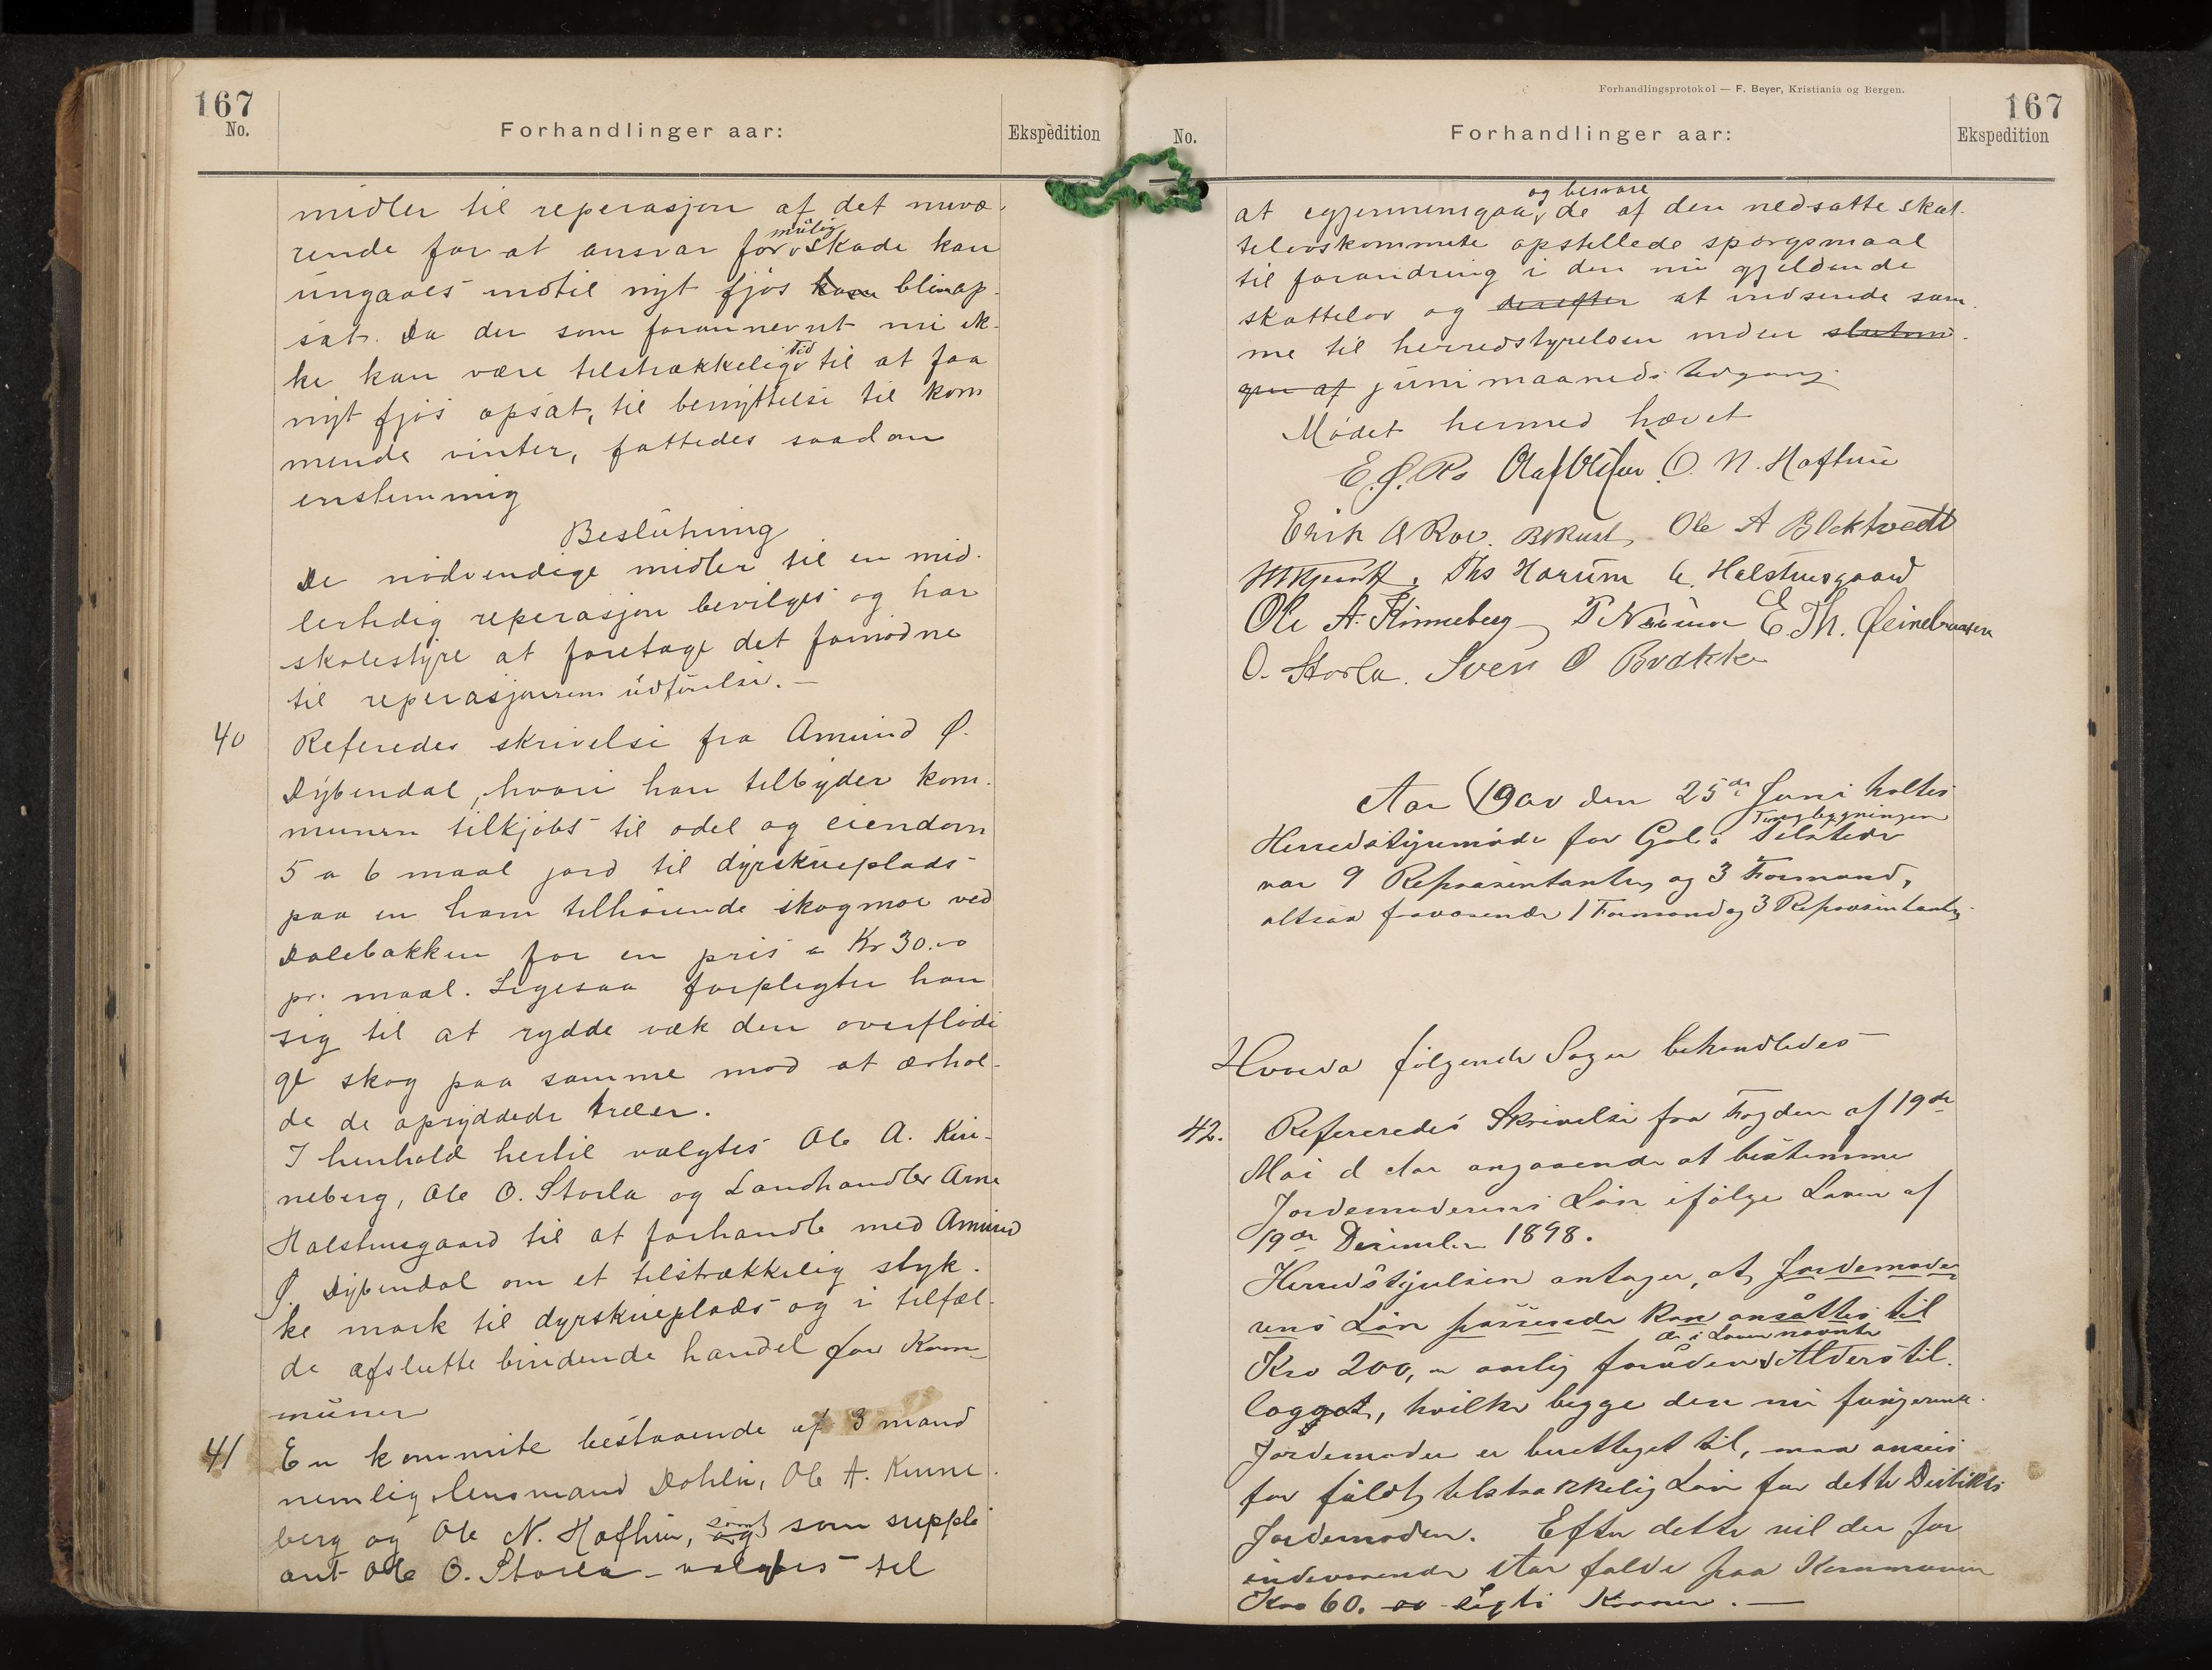 167
No.
Forhandlinger aar:
Ekspedition
midler til reperasjon af det nuvæ-
rende for at ansvar for mulig skade kan
ungaaes indtil nyt fjøs kan bliv op-
sat. Da der som forannevnt nu ik-
ke kan være tilstrækkelig Tid til at faa
nyt fjøs opsat, til benyttelse til kom
mende vinter, fattedes saadan
enstemmig
Beslutning
De nødvendige midler til en mid-
lertidig reperasjon bevilges og har
skolestyre at foretage det fornødne
til reperasjonens udførelse. –
40
Referedes skrivelse fra Amund Ø.
Dybendal, hvori han tilbyder kom-
munen tilkjøbs til odel og eiendom
5 a 6 maal jord til dyrskueplads
paa en ham tilhørende skogmoe ved
Dalebakken for en pris a Kr 30.00
pr. maal. Ligesaa forpligter han
sig til at rydde væk den overflødi
ge skog paa samme mod at erhol-
de de opryddede træer.
I henhold hertil valgtes Ole A. Kin-
neberg, Ole O. Storla og Landhandler Arne
Halstensgaard til at forhandle med Amund
Ø. Dybendal om et tilstrækkelig styk-
ke mark til dyrskueplads og i tilfæl-
de afslutte bindende handel for Kom-
munen
41
En kommite bestaaende af 3 mand
nemlig lensmand Dohlen, Ole A. Kinne-
berg og Ole N. Hafthun, og samt som supple
ant Ole O. Storla – valgtes til
Forhandlingsprotokol — F. Beyer, Kristiania og Bergen.
167
No.
Forhandlinger aar:
Ekspedition
at gjennemgaa og besvare de af den nedsatte skat-
telovskommite opstillede spørgsmaal
til forandring i den nu gjeldende
skattelov og derefter at indsende sam-
me til herredstyrelsen inden slutnin-
gen af juni maaneds Udgang.
Mødet hermed hævet
O. N. Hafthun
Ole A
Ths Harum A. Halstensgaard
Ole A. Kinneberg
O. Storla. Sven O Brakke
Aar 1900 den 25de Juni holtes
Herredstyremøde for Gol i Tingbygningen Tilstede
var 9 Repræsentanter og 3 Formænd,
altsaa fraværende 1 Formand og 3 Repræsentanter
Hvorda følgende Sager behandledes
42.
Refereredes Skrivelse fra Fogden af 19de
Mai d Aar angaaende at bestemme
Jordemoderens Løn ifølge Loven af
19de December 1898.
Herredstyrelsen antager, at Jordemode-
rens Løn passende kan ansættes til
Kro 200, – aarlig foruden de i Loven nævnte Alderstil-
læg, hvilke begge den nu fungerende
Jordemoder er berettiget til, maa ansees
for fuldt tilstrækkelig Løn for dette Distrikts
Jordemoder. Efter dette vil der for
indeværende Aar falde paa Kommunen
Kro 60. – Segsti Kroner. –